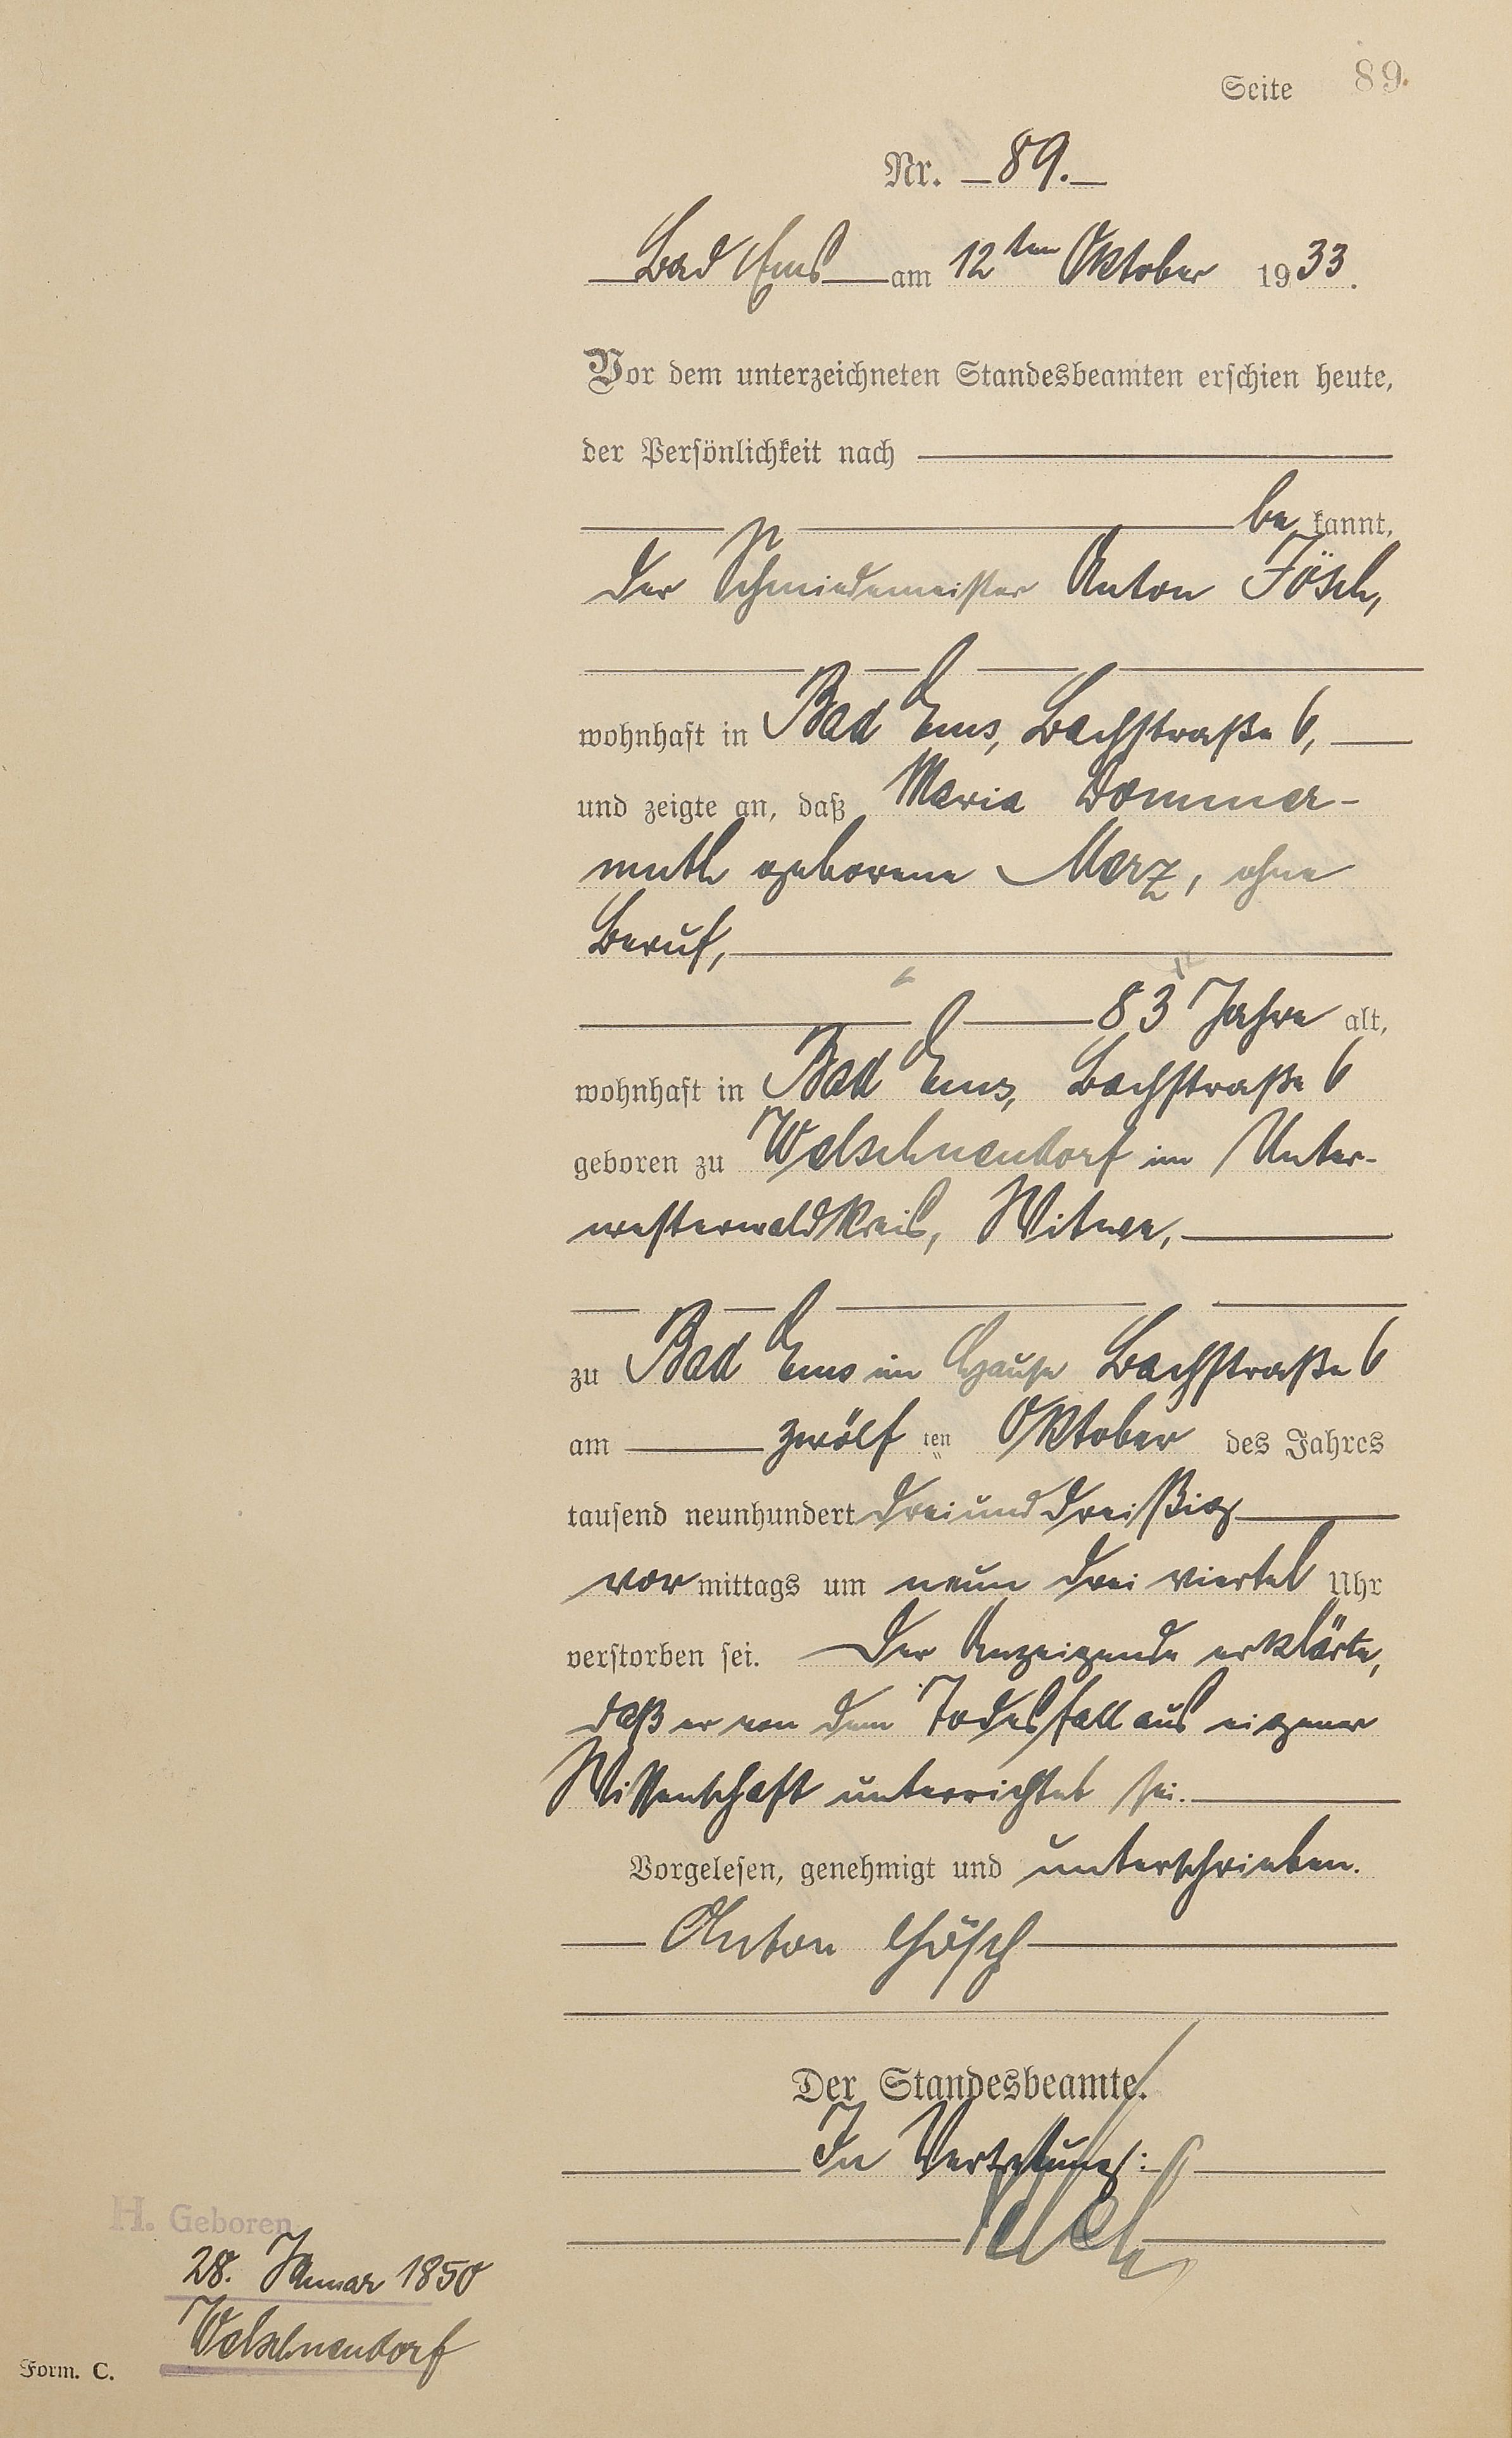 Seite 89.
Nr. 89.
Bad Ems am 12ten Oktober 1933.
Vor dem unterzeichneten Standesbeamten erschien heute,
der Persönlichkeit nach
be kannt,
der Schmiedemeister Anton Jösch,
wohnhaft in Bad Ems, Bachstraße 6,
und zeigte an, daß Maria Dommer-
muth geborene Merz, ohne
Beruf,
83 Jahre alt,
wohnhaft in Bad Ems, Bachstraße 6
geboren zu Welschneudorf im Unter-
westerwaldkreis, Witwe,
zu Bad Ems im Hause Bachstraße 6
am zwölf ten Oktober des Jahres
tausend neunhundert dreiunddreißig
vor mittags um neun drei viertel Uhr
verstorben sei. Der Anzeigende erklärte,
daß er von dem Todesfall aus eigener
Wissenschaft unterrichtet sei.
Vorgelesen, genehmigt und unterschrieben.
Anton Jösch
Der Standesbeamte.
In Vertretung:
H. Geboren
28. Januar 1850
Welschneudorf
Form. C.